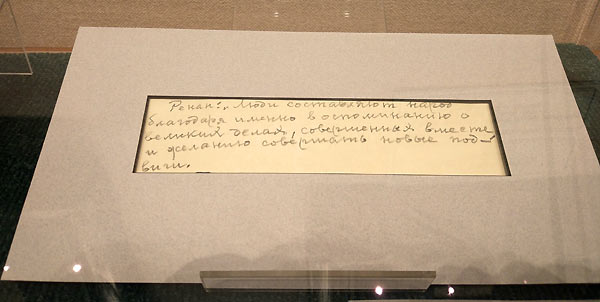 Ренан: „Люди составляют народ
благодаря именно воспоминанию о
великий делах, совершенных вместе
и желанию совершать новые под-
виги.